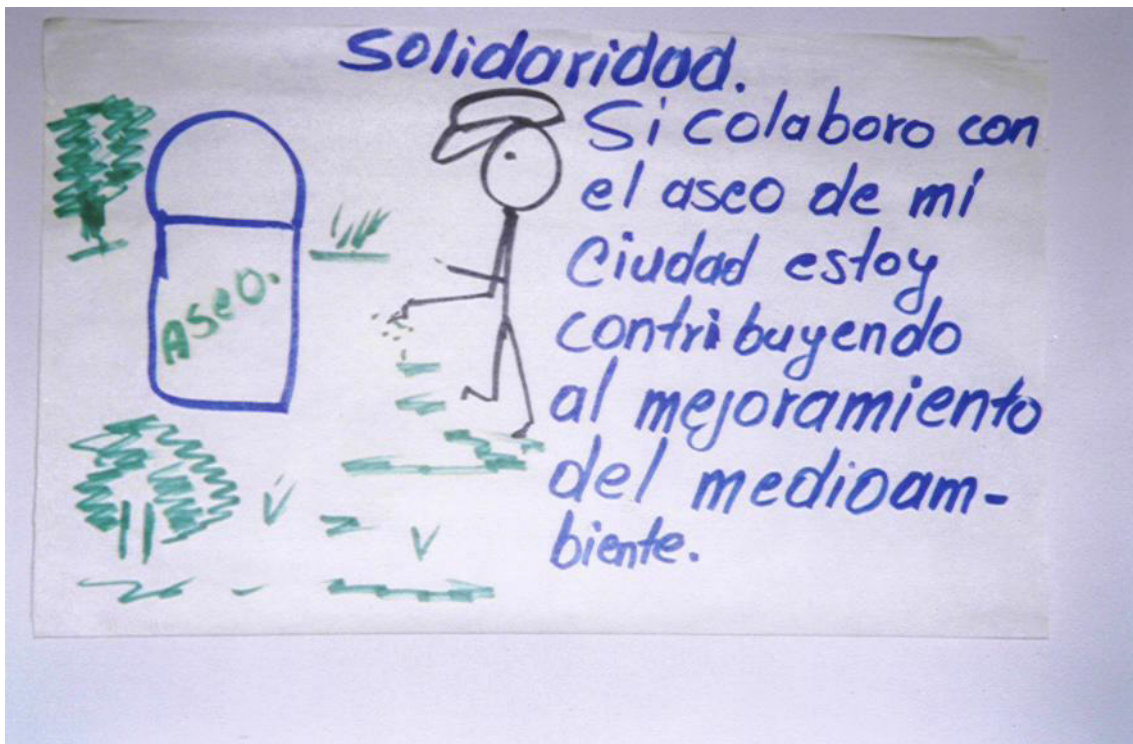 Solidaridad.
Si colaboro con
el aseo de mi
Ciudad estoy
contribuyendo
al mejoramiento
del medioam-
biente.
ASEO.